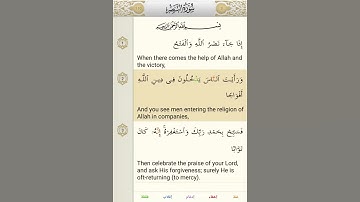 سُورَةُ النَّصْرِ
بِسْمِ اللَّهِ الرَّحْمَٰنِ الرَّحِيمِ
إِذَا جَاءَ نَصْرُ اللَّهِ وَالْفَتْحُ
When there comes the help of Allah and
the victory,
وَرَأَيْتَ النَّاسَ يَدْخُلُونَ فِي دِينِ اللَّهِ
أَفْوَاجًا
And you see men entering the religion of
Allah in companies,
فَسَبِّحْ بِحَمْدِ رَبِّكَ وَاسْتَغْفِرْهُ ۚ إِنَّهُ كَانَ
تَوَّابًا
Then celebrate the praise of your Lord,
and ask His forgiveness; surely He is
oft-returning (to mercy).